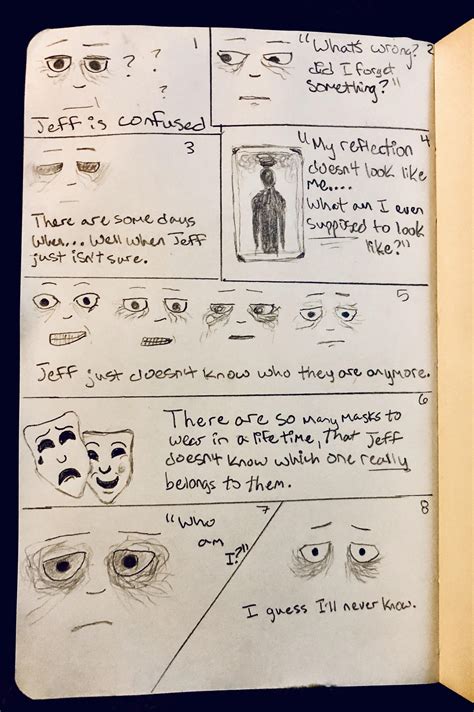 1
? ?
?
Jeff is confused
2
"What's wrong?
did I forget
something?"
3
There are some days
when... Well when Jeff
just isn't sure.
4
"My reflection
doesn't look like
me....
What am I even
supposed to look
like?"
5
Jeff just doesn't know who they are anymore.
6
There are so many masks to
wear in a lifetime, that Jeff
doesn't know which one really
belongs to them.
7
"Who
am
I?"
8
I guess I'll never know.